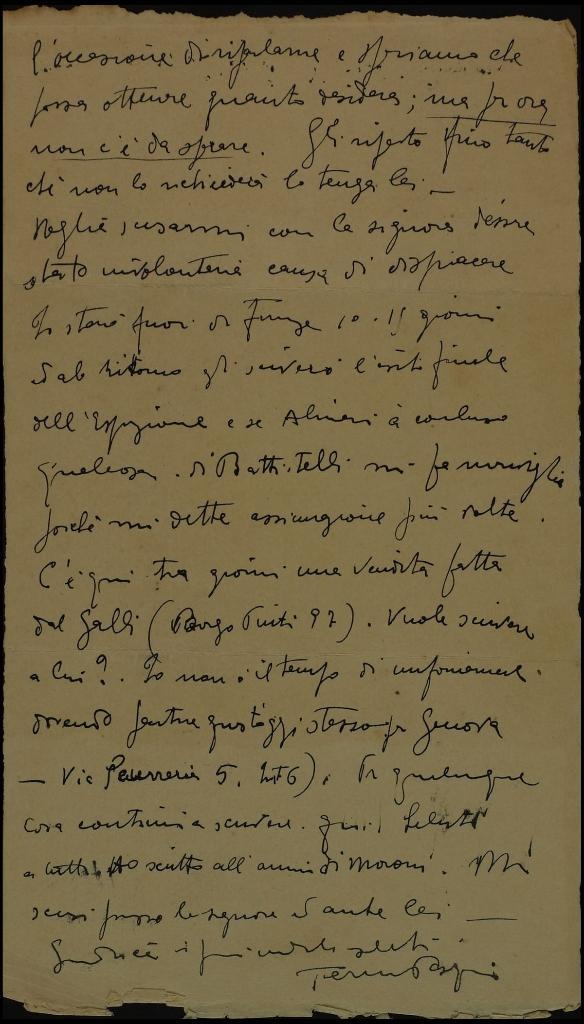 l'occasione di riparlarne e speriamo che
possa ottenere quanto desidera; ma per ora
non c'è da sperare. Gli ripeto fino tanto
chè non lo richiederà lo tenga lei –
Voglia scusarmi con la signora d'essere
stato involontaria causa di dispiacere
Io starò fuori di Firenze 10 . 15 giorni
ed al ritorno gli scriverò l'esito finale
dell'Esposizione e se Alinari à concluso
qualcosa . di Battistelli mi fa meraviglia
perchè mi dette assicurazione più volte .
C'è qui tra giorni una vendita fatta
dal Galli (Borgo Pinti 97). Vuole scrivere
a lui ? . Io non ò il tempo di
dovendo partire quest'oggi stesso per Genova
— Via 5. int 6) . Per qualunque
cosa continui a scrivere . qui .
a tutti. Ho scritto all'amico di Moroni . Mi
scusi presso la signora ed anche lei —
Gradisca i più cordiali saluti